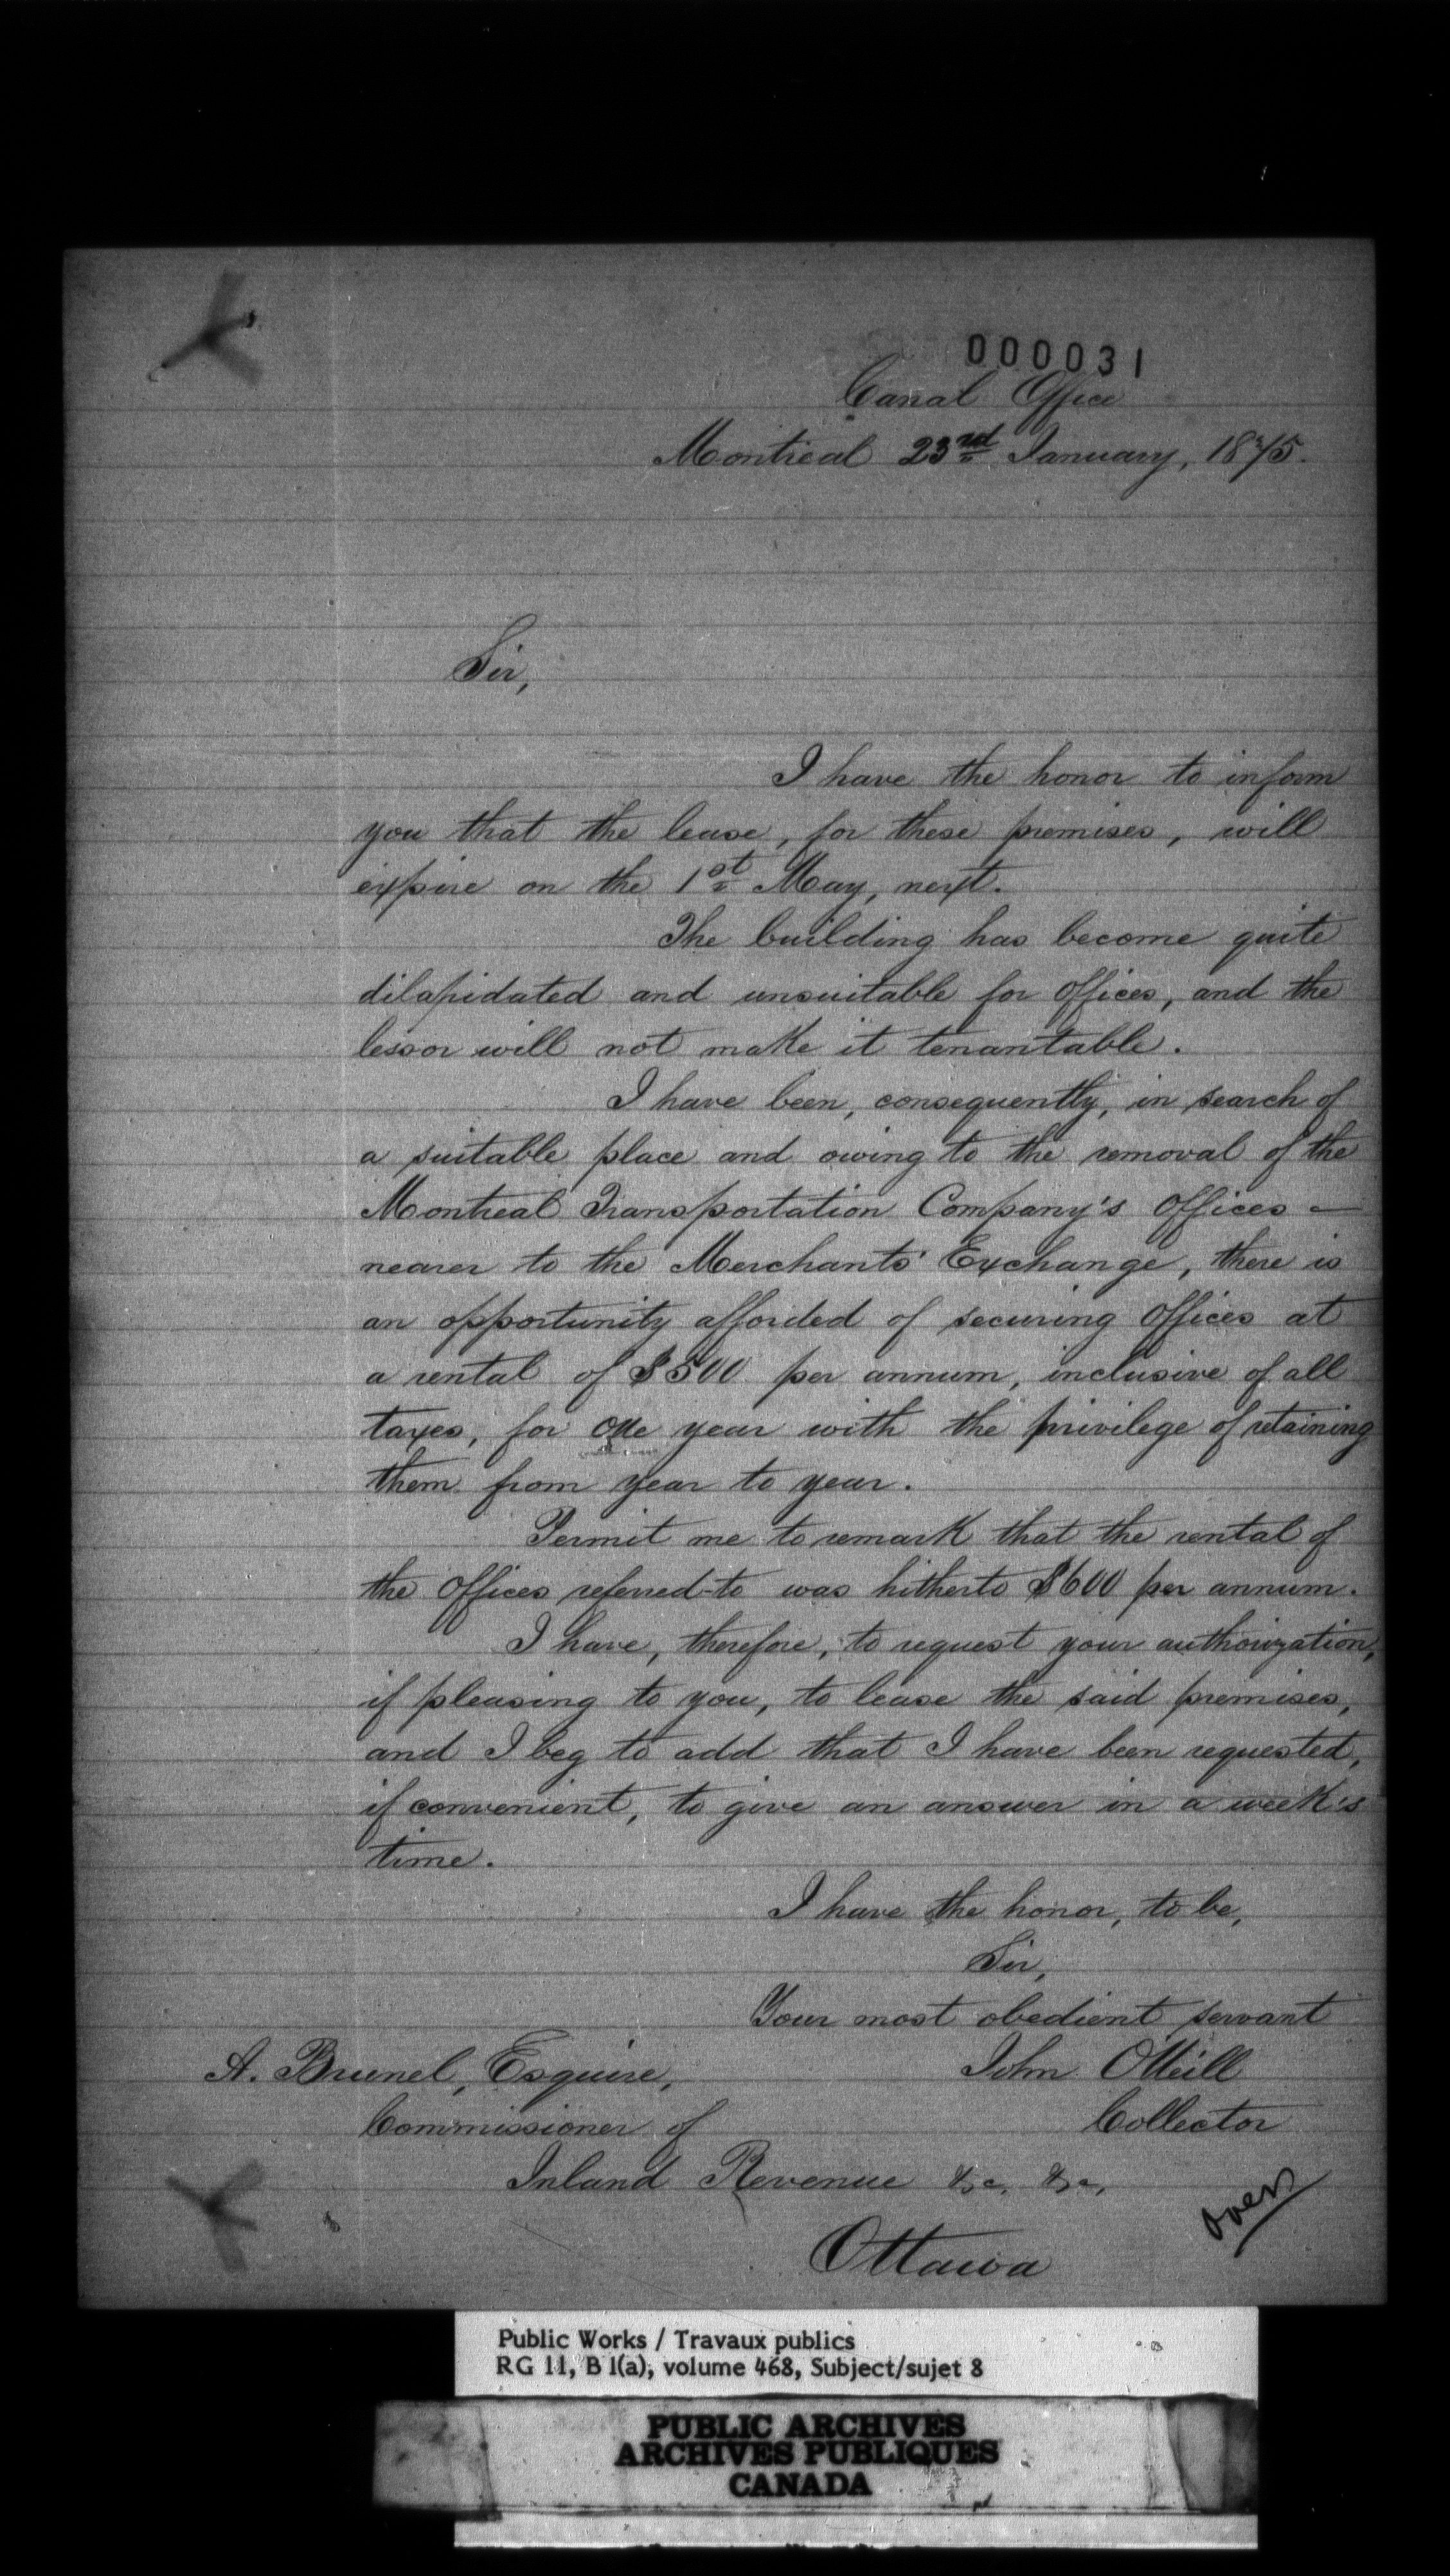 000031
Canal Office
Montreal 23rd January, 1875.
Sir,
I have the honor to inform
you that the lease, for these premises, will
expire on the 1st May, next.
The building has become quite
dilapidated and unsuitable for offices, and the
lessor will not make it tenantable.
I have been, consequently, in search of
a suitable place and owing to the removal of the
Montreal Transportation Company's Offices —
nearer to the Merchants' Exchange, there is
an opportunity afforded of securing Offices at
a rental of $500 per annum, inclusive of all
taxes, for one year with the privilege of retaining
them from year to year.
Permit me to remark that the rental of
the Offices referred-to was hitherto $600 per annum.
I have, therefore, to request your authorization,
if pleasing to you, to lease the said premises,
and I beg to add that I have been requested,
if convenient, to give an answer in a week's
time.
I have the honor, to be,
Sir,
Your most obedient servant
John O'Neill
Collector
A. Brunel, Esquire,
Commissioner of
Inland Revenue &c, &c,
Ottawa
over
Public Works / Travaux publics
RG 11, B 1(a), volume 468, Subject/sujet 8
PUBLIC ARCHIVES
ARCHIVES PUBLIQUES
CANADA